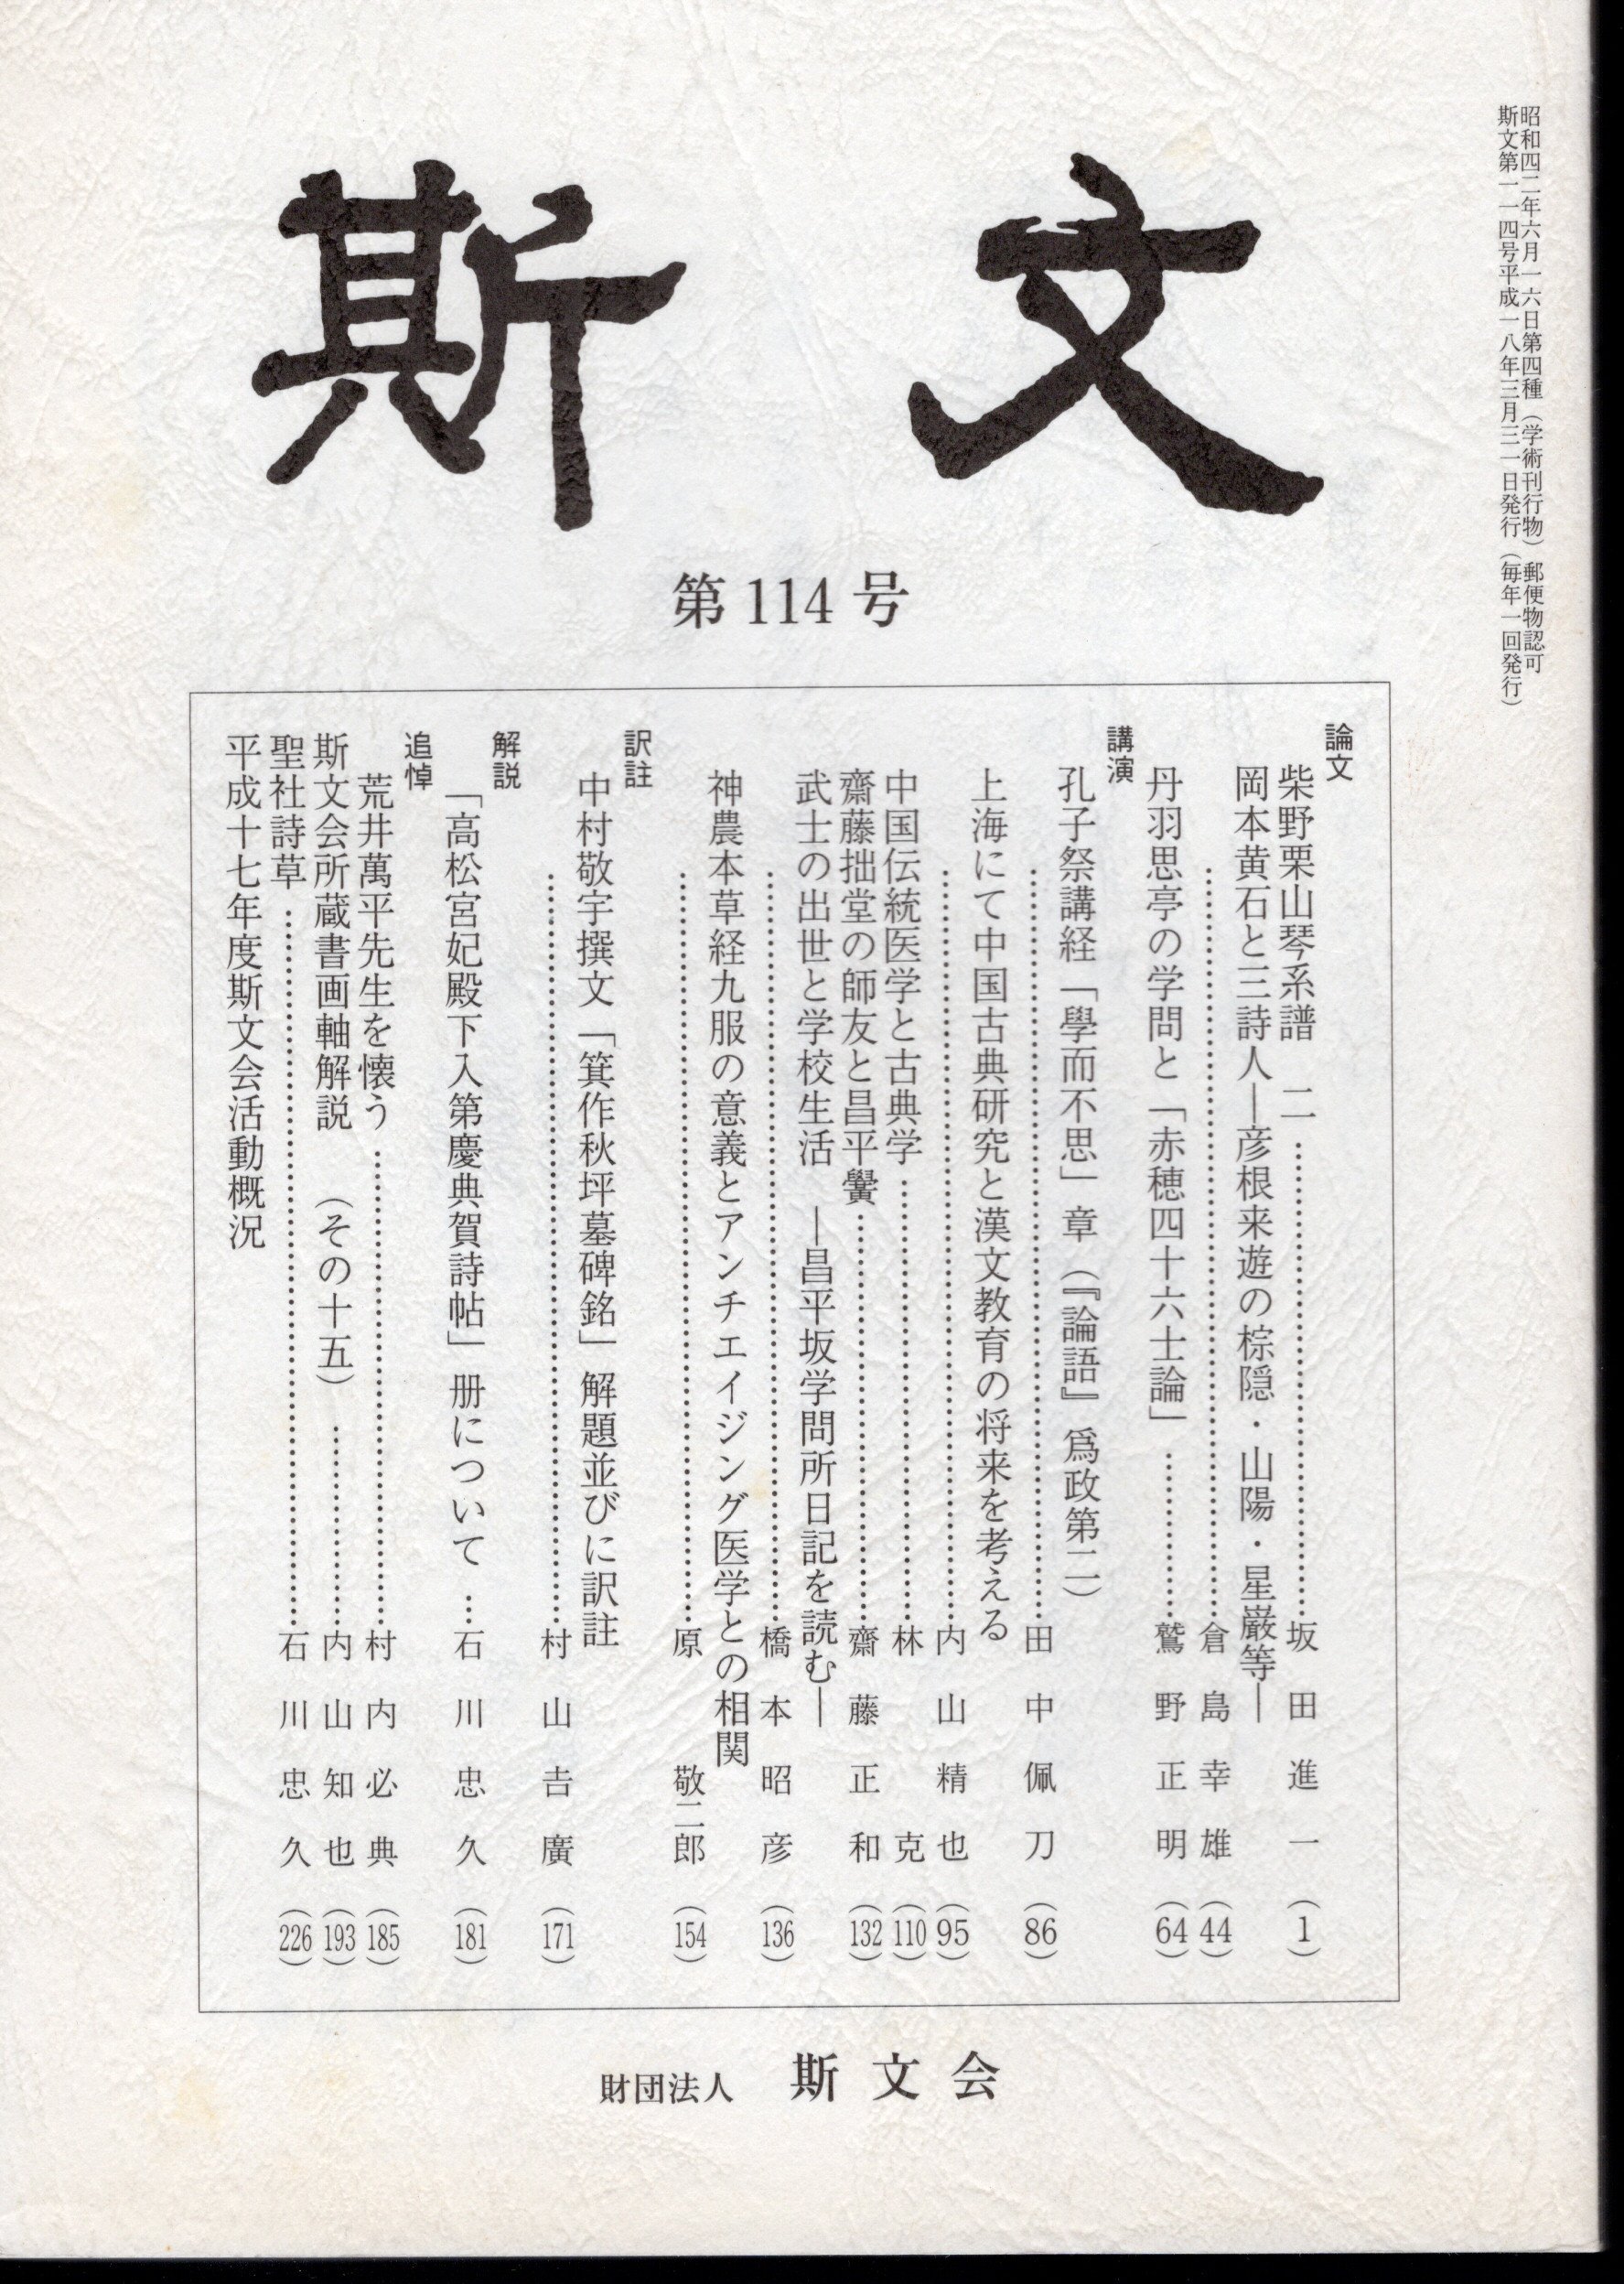 昭和四二年六月一六日第四種（学術刊行物）郵便物認可
斯文第一一四号平成一八年三月三一日発行（毎年一回発行）
斯文
第114号
論文
柴野栗山琴系譜　二……坂田進一（1）
岡本黄石と三詩人―彦根来遊の棕隠・山陽・星巌等―
……倉島幸雄（44）
丹羽思亭の学問と「赤穂四十六士論」……鷲野正明（64）
講演
孔子祭講経「學而不思」章（『論語』爲政第二）
……田中佩刀（86）
上海にて中国古典研究と漢文教育の将来を考える
……内山精也（95）
中国伝統医学と古典学……林克（110）
齋藤拙堂の師友と昌平黌……齋藤正和（132）
武士の出世と学校生活　―昌平坂学問所日記を読む―
……橋本昭彦（136）
神農本草経九服の意義とアンチエイジング医学との相関
……原敬二郎（154）
訳註
中村敬宇撰文「箕作秋坪墓碑銘」解題並びに訳註
……村山吉廣（171）
解説
「高松宮妃殿下入第慶典賀詩帖」册について…石川忠久（181）
追悼
荒井萬平先生を懐う……村内必典（185）
斯文会所蔵書画軸解説　（その十五）……内山知也（193）
聖社詩草……石川忠久（226）
平成十七年度斯文会活動概況
財団法人　斯文会